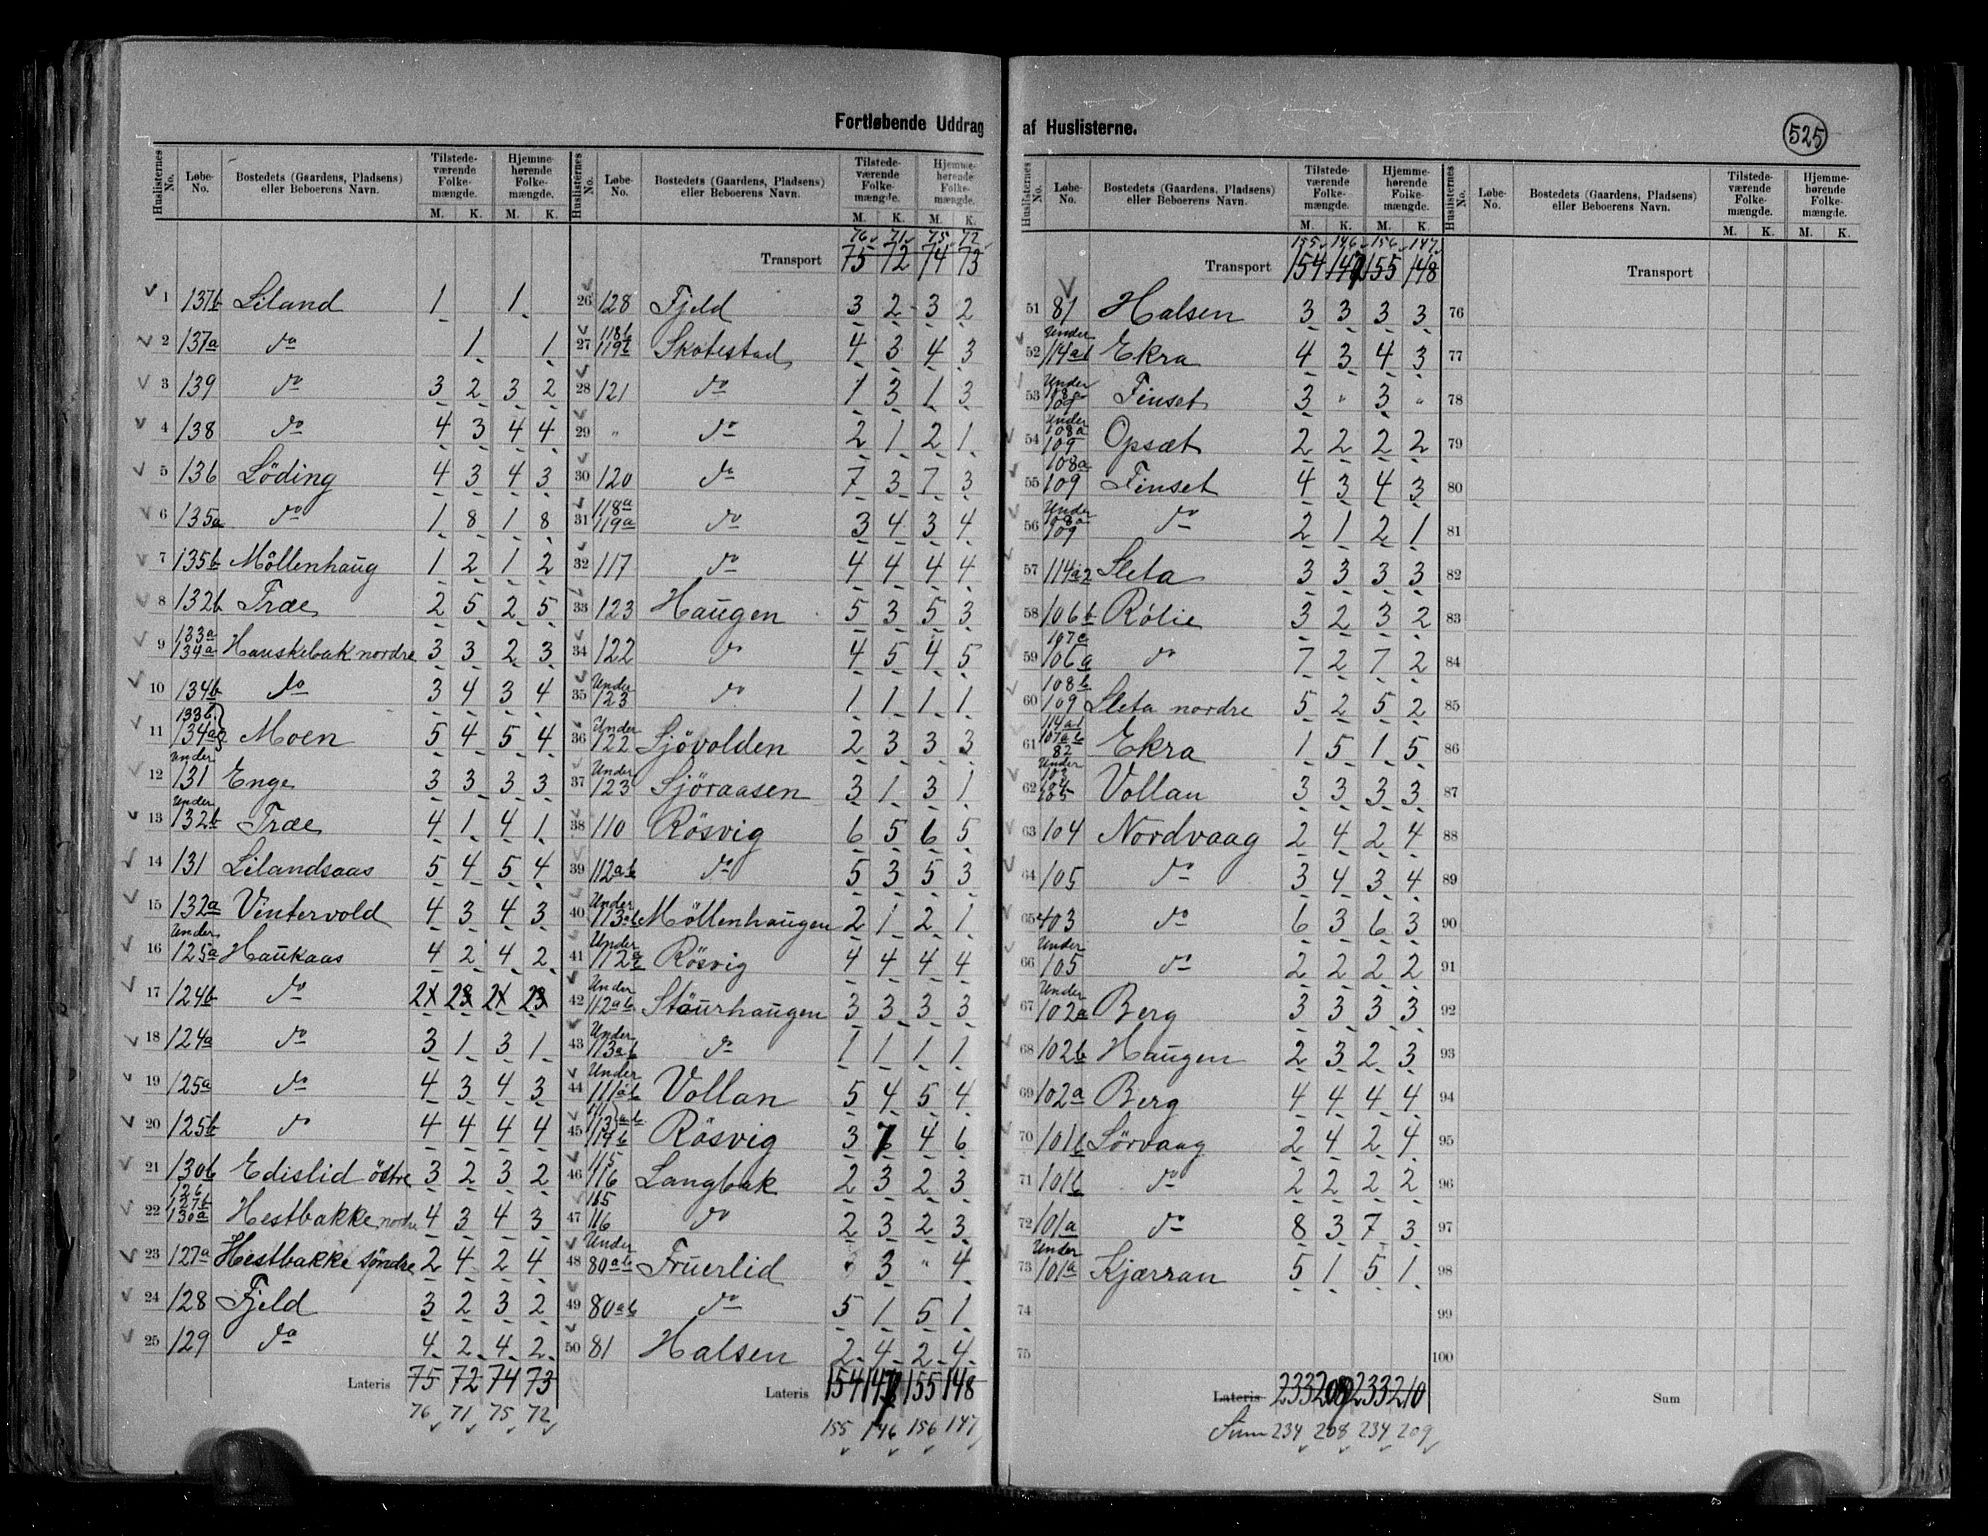 Fortløbende Uddrag af Huslisterne.
525
Huslisternes No. Løbe-No. Bostedets (Gaardens, Pladsens) eller Beboerens Navn. Tilstedeværende Folkemængde. M. K. Hjemmehørende Folkemængde. M. K.
1 137b Liland 1 1
2 137a do 1 1
3 139 do 3 2 3 2
4 138 do 4 3 4 4
5 136 Löding 4 3 4 3
6 135a do 1 8 1 8
7 135b Möllenhaug 1 2 1 2
8 132b Træ 2 5 2 5
9 133a 134a Hauskebak nordre 3 3 2 3
10 134b do 3 4 3 4
11 133b 134a2 Moen 5 4 5 4
12 Under 131 Enge 3 3 3 3
13 Under 132b Træ 4 1 4 1
14 131 Lilandsaas 5 4 5 4
15 132a Vintervold 4 3 4 3
16 Under 125a Haukaas 4 2 4 2
17 124b do
18 124a do 3 1 3 1
19 125a do 4 3 4 3
20 125b do 4 4 4 4
21 130b Edislid östre 3 2 3 2
22 126 127b 130a Hestbakke nordre 4 3 4 3
23 127a Hestbakke søndre 2 4 2 4
24 128 Fjeld 3 2 3 2
25 129 do 4 2 4 2
Lateris 75 72 74 73
76 71 75 72
Huslisternes No. Løbe-No. Bostedets (Gaardens, Pladsens) eller Beboerens Navn. Tilstedeværende Folkemængde. M. K. Hjemmehørende Folkemængde. M. K.
76 71 75 72
Transport 75 72 74 73
26 128 Fjeld 3 2 3 2
27 118b 119b Skotestad 4 3 4 3
28 121 do 1 3 1 3
29 " do 2 1 2 1
30 120 do 7 3 7 3
31 118a 119a do 3 4 3 4
32 117 do 4 4 4 4
33 123 Haugen 5 3 5 3
34 122 do 4 5 4 5
35 Under 123 do 1 1 1 1
36 Under 122 Sjövolden 2 3 3 3
37 Under 123 Sjöraasen 3 1 3 1
38 110 Rösvig 6 5 6 5
39 112ab do 5 3 5 3
40 Under 113ab Möllenhaugen 2 1 2 1
41 Under 112a Rösvig 4 4 4 4
42 Under 112ab Stöurhaugen 3 3 3 3
43 Under 113ab do 1 1 1 1
44 Under 111ab Vollan 5 4 5 4
45 111 113 ab 114b Rösvig 3 7 4 6
46 115 116 Langbak 2 3 2 3
47 115 116 do 2 3 2 3
48 Under 80ab Fruerlid " 3 " 4
49 80ab do 5 1 5 1
50 81 Halsen 2 4 2 4
Lateris 154 147 155 148
155 146 156 147
Huslisternes No. Løbe-No. Bostedets (Gaardens, Pladsens) eller Beboerens Navn. Tilstedeværende Folkemængde. M. K. Hjemmehørende Folkemængde. M. K.
155 146 156 147
Transport 154 147 155 148
51 81 Halsen 3 3 3 3
52 Under 114a1 Ekra 4 3 4 3
53 Under 108a 109 Finset 3 " 3 "
54 Under 108a 109 Opsæt 2 2 2 2
55 108a 109 Finset 4 3 4 3
56 Under 108a 109 do 2 1 2 1
57 114a2 Sleta 3 3 3 3
58 106b Rölie 3 2 3 2
59 107a 106a do 7 2 7 2
60 108b 109 Sleta nordre 5 2 5 2
61 114a1 107ab 82 Ekra 1 5 1 5
62 Under 103 104 105 Vollan 3 3 3 3
63 104 Nordvaag 2 4 2 4
64 105 do 3 4 3 4
65 103 do 6 3 6 3
66 Under 105 do 2 2 2 2
67 Under 102a Berg 3 3 3 3
68 102b Haugen 2 3 2 3
69 102a Berg 4 4 4 4
70 101b Sörvaag 2 4 2 4
71 101b do 2 2 2 2
72 101a do 8 3 7 3
73 Under 101a Kjærran 5 1 5 1
74
75
Lateris 233 209 233 210
Sum 234 208 234 209
Huslisternes No. Løbe-No. Bostedets (Gaardens, Pladsens) eller Beboerens Navn. Tilstedeværende Folkemængde. M. K. Hjemmehørende Folkemængde. M. K.
Transport
76
77
78
79
80
81
82
83
84
85
86
87
88
89
90
91
92
93
94
95
96
97
98
99
100
Sum